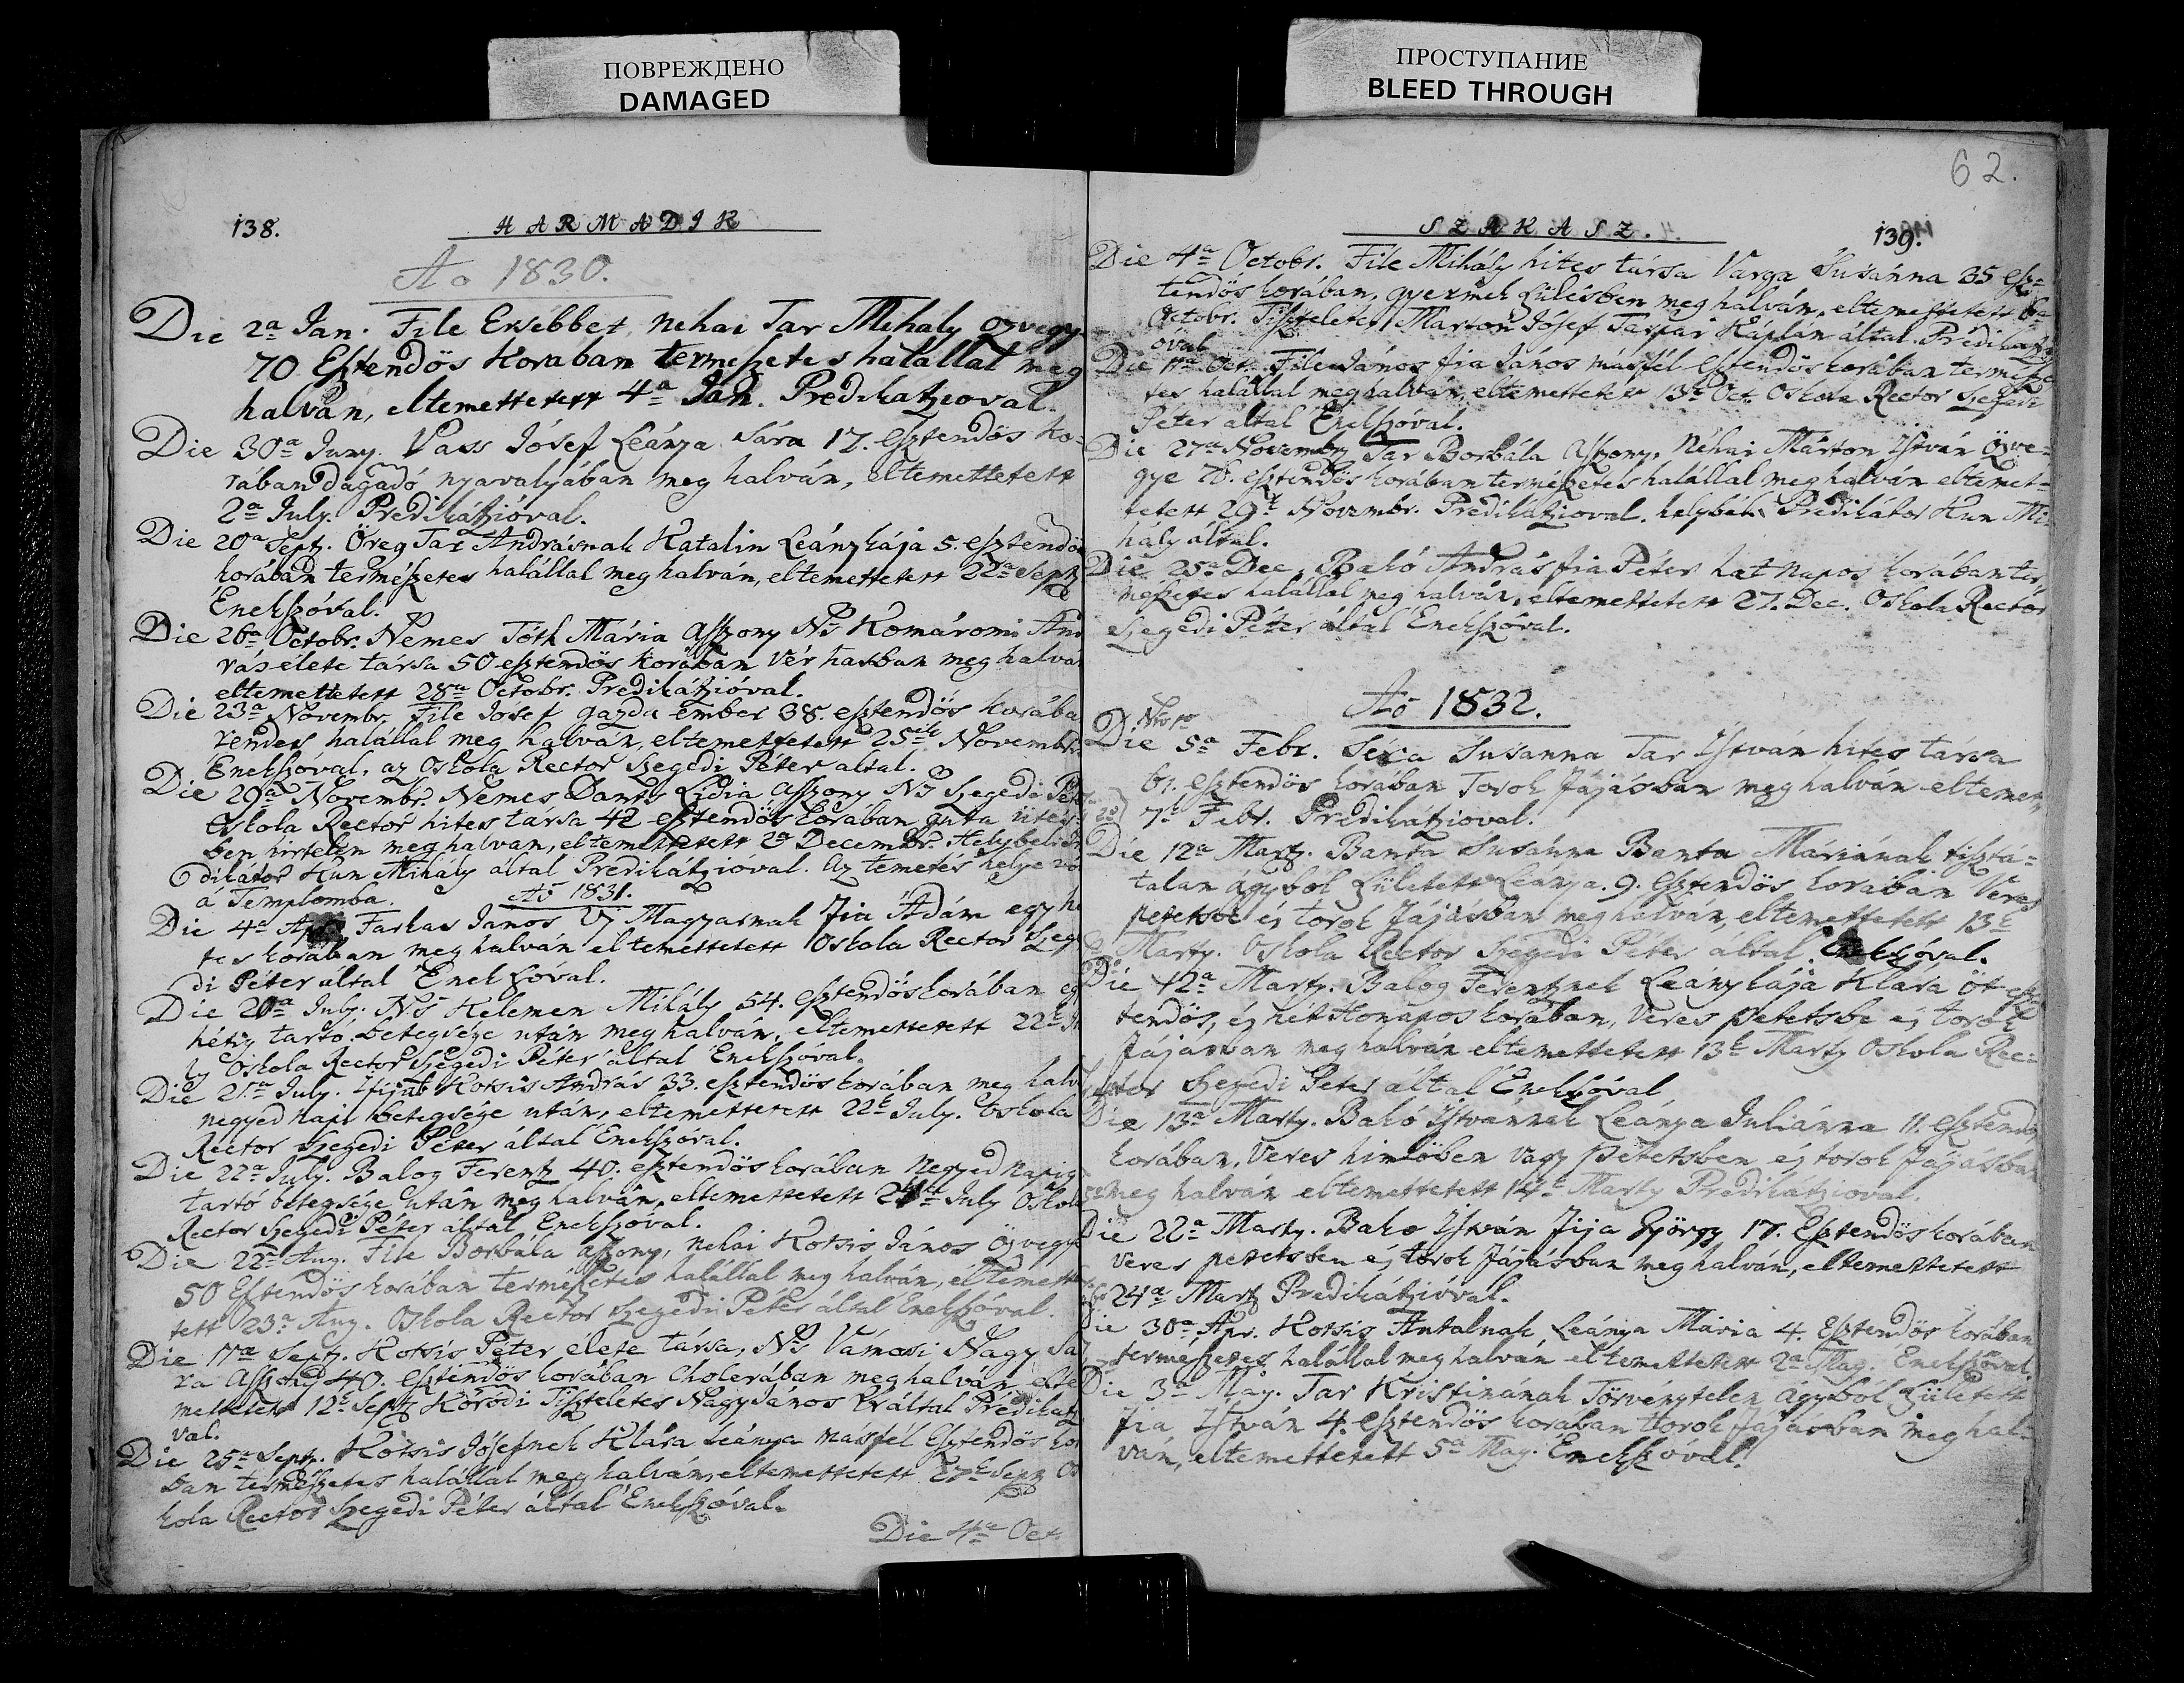 ПОВРЕЖДЕНО
DAMAGED
ПРОСТУПАНИЕ
BLEED THROUGH
62.
138.
HARMADIK
Ao 1830.
Die 2a Jan. File Ersébbet néhai Tar Mihály özvegy
70 Esztendös Korában termeszetes halállal meg
halván, eltemettetett 4a Jan. Prédikátzioval.
Die 30a Juny. Vass Jósef Leánya Sára 17. esztendös ko-
rában dagadó nyavalyában meg halván, eltemettetett
2a July. Prédikátzióval.
Die 20a Sept. Öreg Tar Andrásnak Katalin Leánykája 5. esztendös
korában természetes halállal meg halván, eltemettetett 22a Sept
Énekszóval.
Die 26a Octobr. Nemes Tóth Mária Aszszony Ns Komáromi And
rás élete társa 50 esztendös korában Vér hasban meg halván
eltemettetett 28a Octobr. Predikátzióval.
Die 23a Novembr. File Jósef gazda ember 38. esztendös korába
rendes halállal meg halván, eltemettetett 25ik Novembr
Énekszoval, az Oskola Rector Szegedi Péter altal.
Die 29a Novembr. Nemes Dants Lidia Aszszony Ns Szegedi Péte
Oskola Rector hites társa 42 esztendös korában guta ütés
ben hirtelen meg halván, eltemettetett 2a Decembr. Helybeli
dikátor Kun Mihály által Predikátzióval. Az temetés helye
a Templomba.
Ao 1831.
Die 4a Apr. Farkas János Uj Magyarnak fia Ádám egy he
tes korában meg halván eltemettetett Oskola Rector Szege
di Péter által Enekszóval.
Die 20a July. Ns Kelemen Mihály 54. esztendös korában egy
hétig tartó betegsége után meg halván, eltemettetett 22k Ju
ly Oskola Rector Szegedi Péter által Enekszóval.
Die 21a July. Ifjabb Kotsis András 33. esztendös korában meg halv
negyed napi betegsége után, eltemettetett 22k July. Oskola
Rector Szegedi Péter által Enekszóval.
Die 22a July. Balog Ferentz 40. esztendös korában Negyed napig
tartó betegsége után meg halván, eltemettetett 24k July Oskola
Rector Szegedi Péter által Enekszóval.
Die 22a Aug. File Borbála aszszony, néhai Kotsis János Özvegye
50 Esztendös korában természetes halállal meg halván, eltemette
tett 23a Aug. Oskola Rector Szegedi Péter által Enekszóval.
Die 11a Sept. Kotsis Péter élete társa, Ns Vámosi Nagy Sá
ra Aszszony 40. esztendös korában Cholerában meg halván elte
mettetett 12k Sept Körödi Tiszteletes Nagy János által Prédikátz
val.
Die 25a Sept. Kotsis Jósefnek Klára Leánya másfél Esztendös kor
ban természetes halállal meg halván, eltemettetett 27k Sept Os
kola Rector Szegedi Péter által Enekszóval.
Die 4a Oct.
SZAKASZ.
139.
Die 4a Octobr. File Mihály hites társa Varga Susánna 35 esz-
tendös korában, gyermek szülésben meg halván, eltemettetett 6a
Octobr. Tiszteletes Marton Jósef Káplán által. Prédikátzi
óval
Die 11a Oct. File János fia János másfél esztendös korában természe
tes halállal meg halván, eltemettetett 13k Oct. Oskola Rector Szegedi
Péter által Enekszóval.
Die 27a Novembr. Tar Borbála Aszszony, Néhai Márton István Özve-
gye 76. esztendös korában természetes halállal meg halván eltemet-
tetett 29k Novembr. Prédikátzioval. helybéli Prédikátor Kun Mi
hály által.
Die 25a Dec. Bakó András fia Péter hat napos korában ter-
mészetes halállal meg halván, eltemettetett 27. Dec. Oskola Rector
Szegedi Péter által Enekszoval.
Ao 1832.
Die 5a Febr. Susanna Tar István hites tarsa
61. esztendös korában Torok fájásban meg halván eltemet,,
7k Febr. Predikátzioval.
Die 12a Martz. Banta Susánna Banta Máriának tisztá-
talan ágyból született Leánya. 9. esztendös korában Veres
petetsbe és torok fájásban meg halván, eltemettetett 13k
Marty. Oskola Rector Szegedi Péter által Énekszóval.
Die 12a Marty. Balog Ferentznek Leánykája Klára öt esz-
tendös, és hét Honapos korában, Veres petetsbe és torok
fájásban meg halván eltemettetett 13k Marty Oskola Rec-
tor Szegedi Péter által Enekszóval
Die 13a Marty. Bakó Istvánnak Leánya Juliánna 11. esztendös
korában, Veres himlöben vagy petetsben és torok fájásban
meg halván eltemettetett 14k Marty Predikátzioval.
Die 22a Marty. Bako István fija György 17. Esztendös korában
veres petetsben és torok fájásban meg halván, eltemettetett
24a Marty Predikátzióval.
Die 30a Apr. Kotsis Antalnak Leánya Mária 4. Esztendös korában
természetes halállal meg halván eltemettetett 2a May. Enekszóval.
Die 3a May. Tar Kristinának Törvénytelen ágyból született
fia István 4. esztendös korában torok fájásban meg hal-
ván, eltemettetett 5a May. Enekszóval.